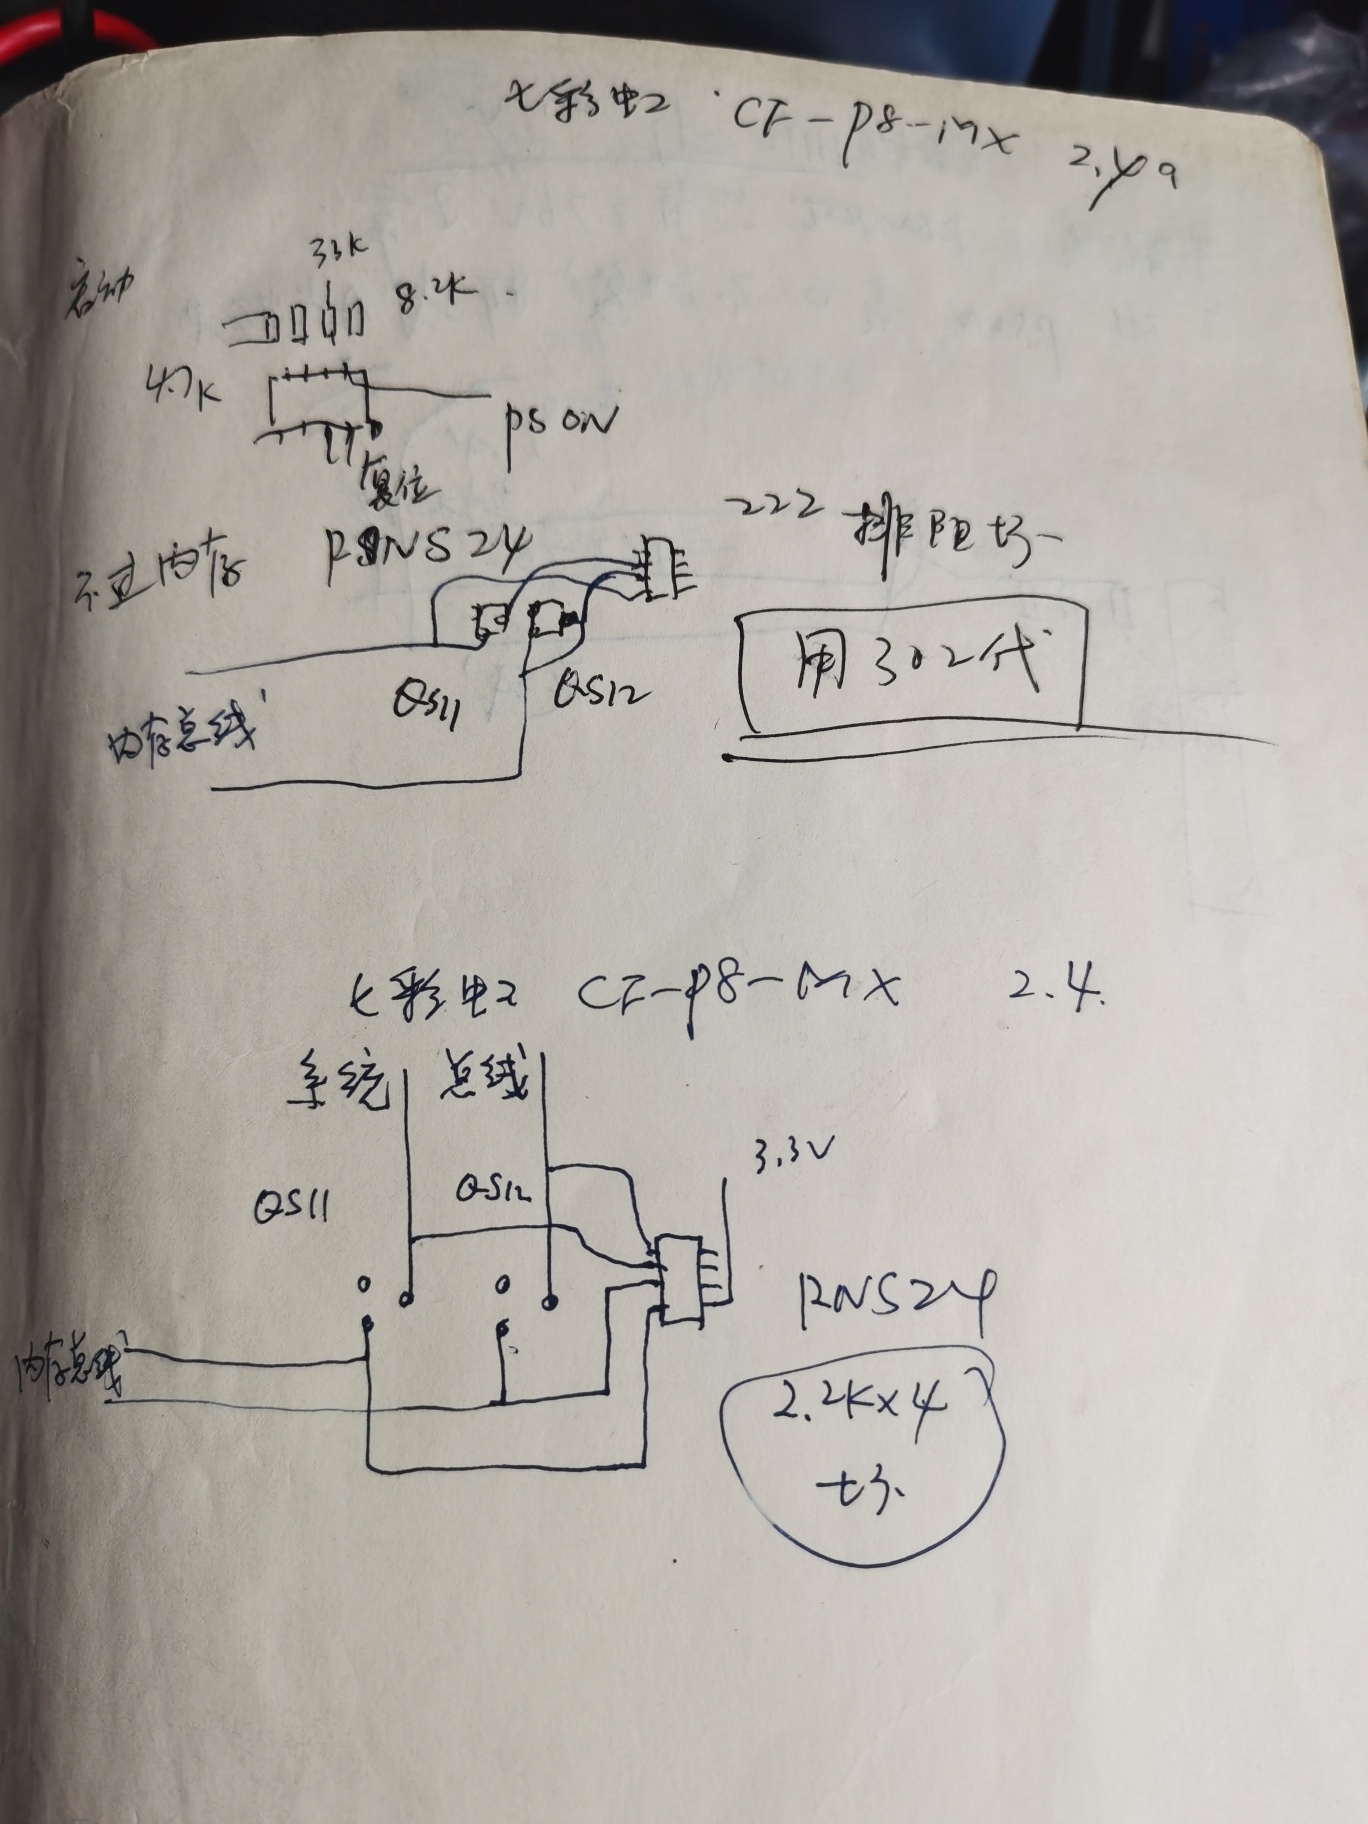 七彩虹 CF-P8-MX 2.4a
启动
33K
8.2K
4.7K
PSON
复位
不过内存 RNS24
222排阻坏
QS11 QS12
用302代
内存总线
七彩虹 CF-P8-MX 2.4
系统 总线
3.3V
QS11 QS12
RNS24
内存总线
2.2K×4
坏